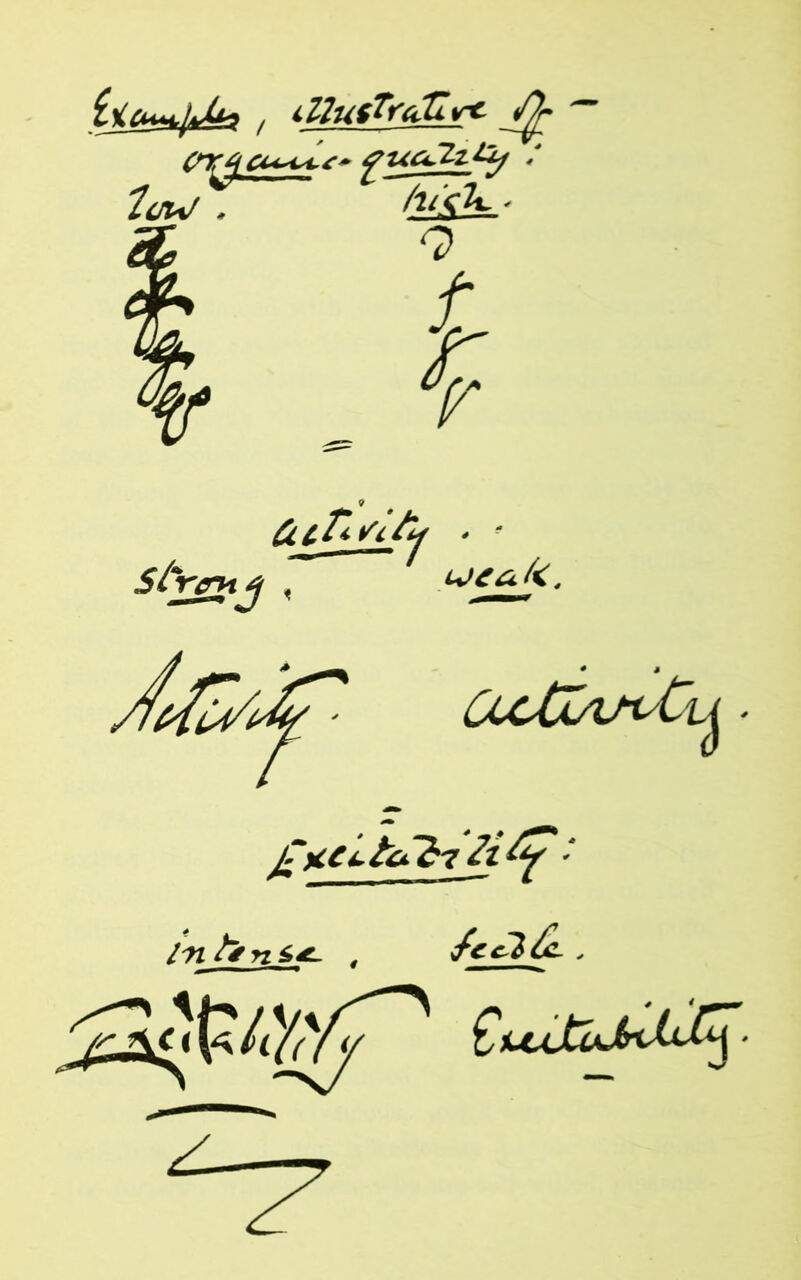 Examples, illustrative of -
organic quality:
low. high.
activity..
strong, weak.
Activity. activity.
Excitability:
intense, feeble.
Excitability Excitability.